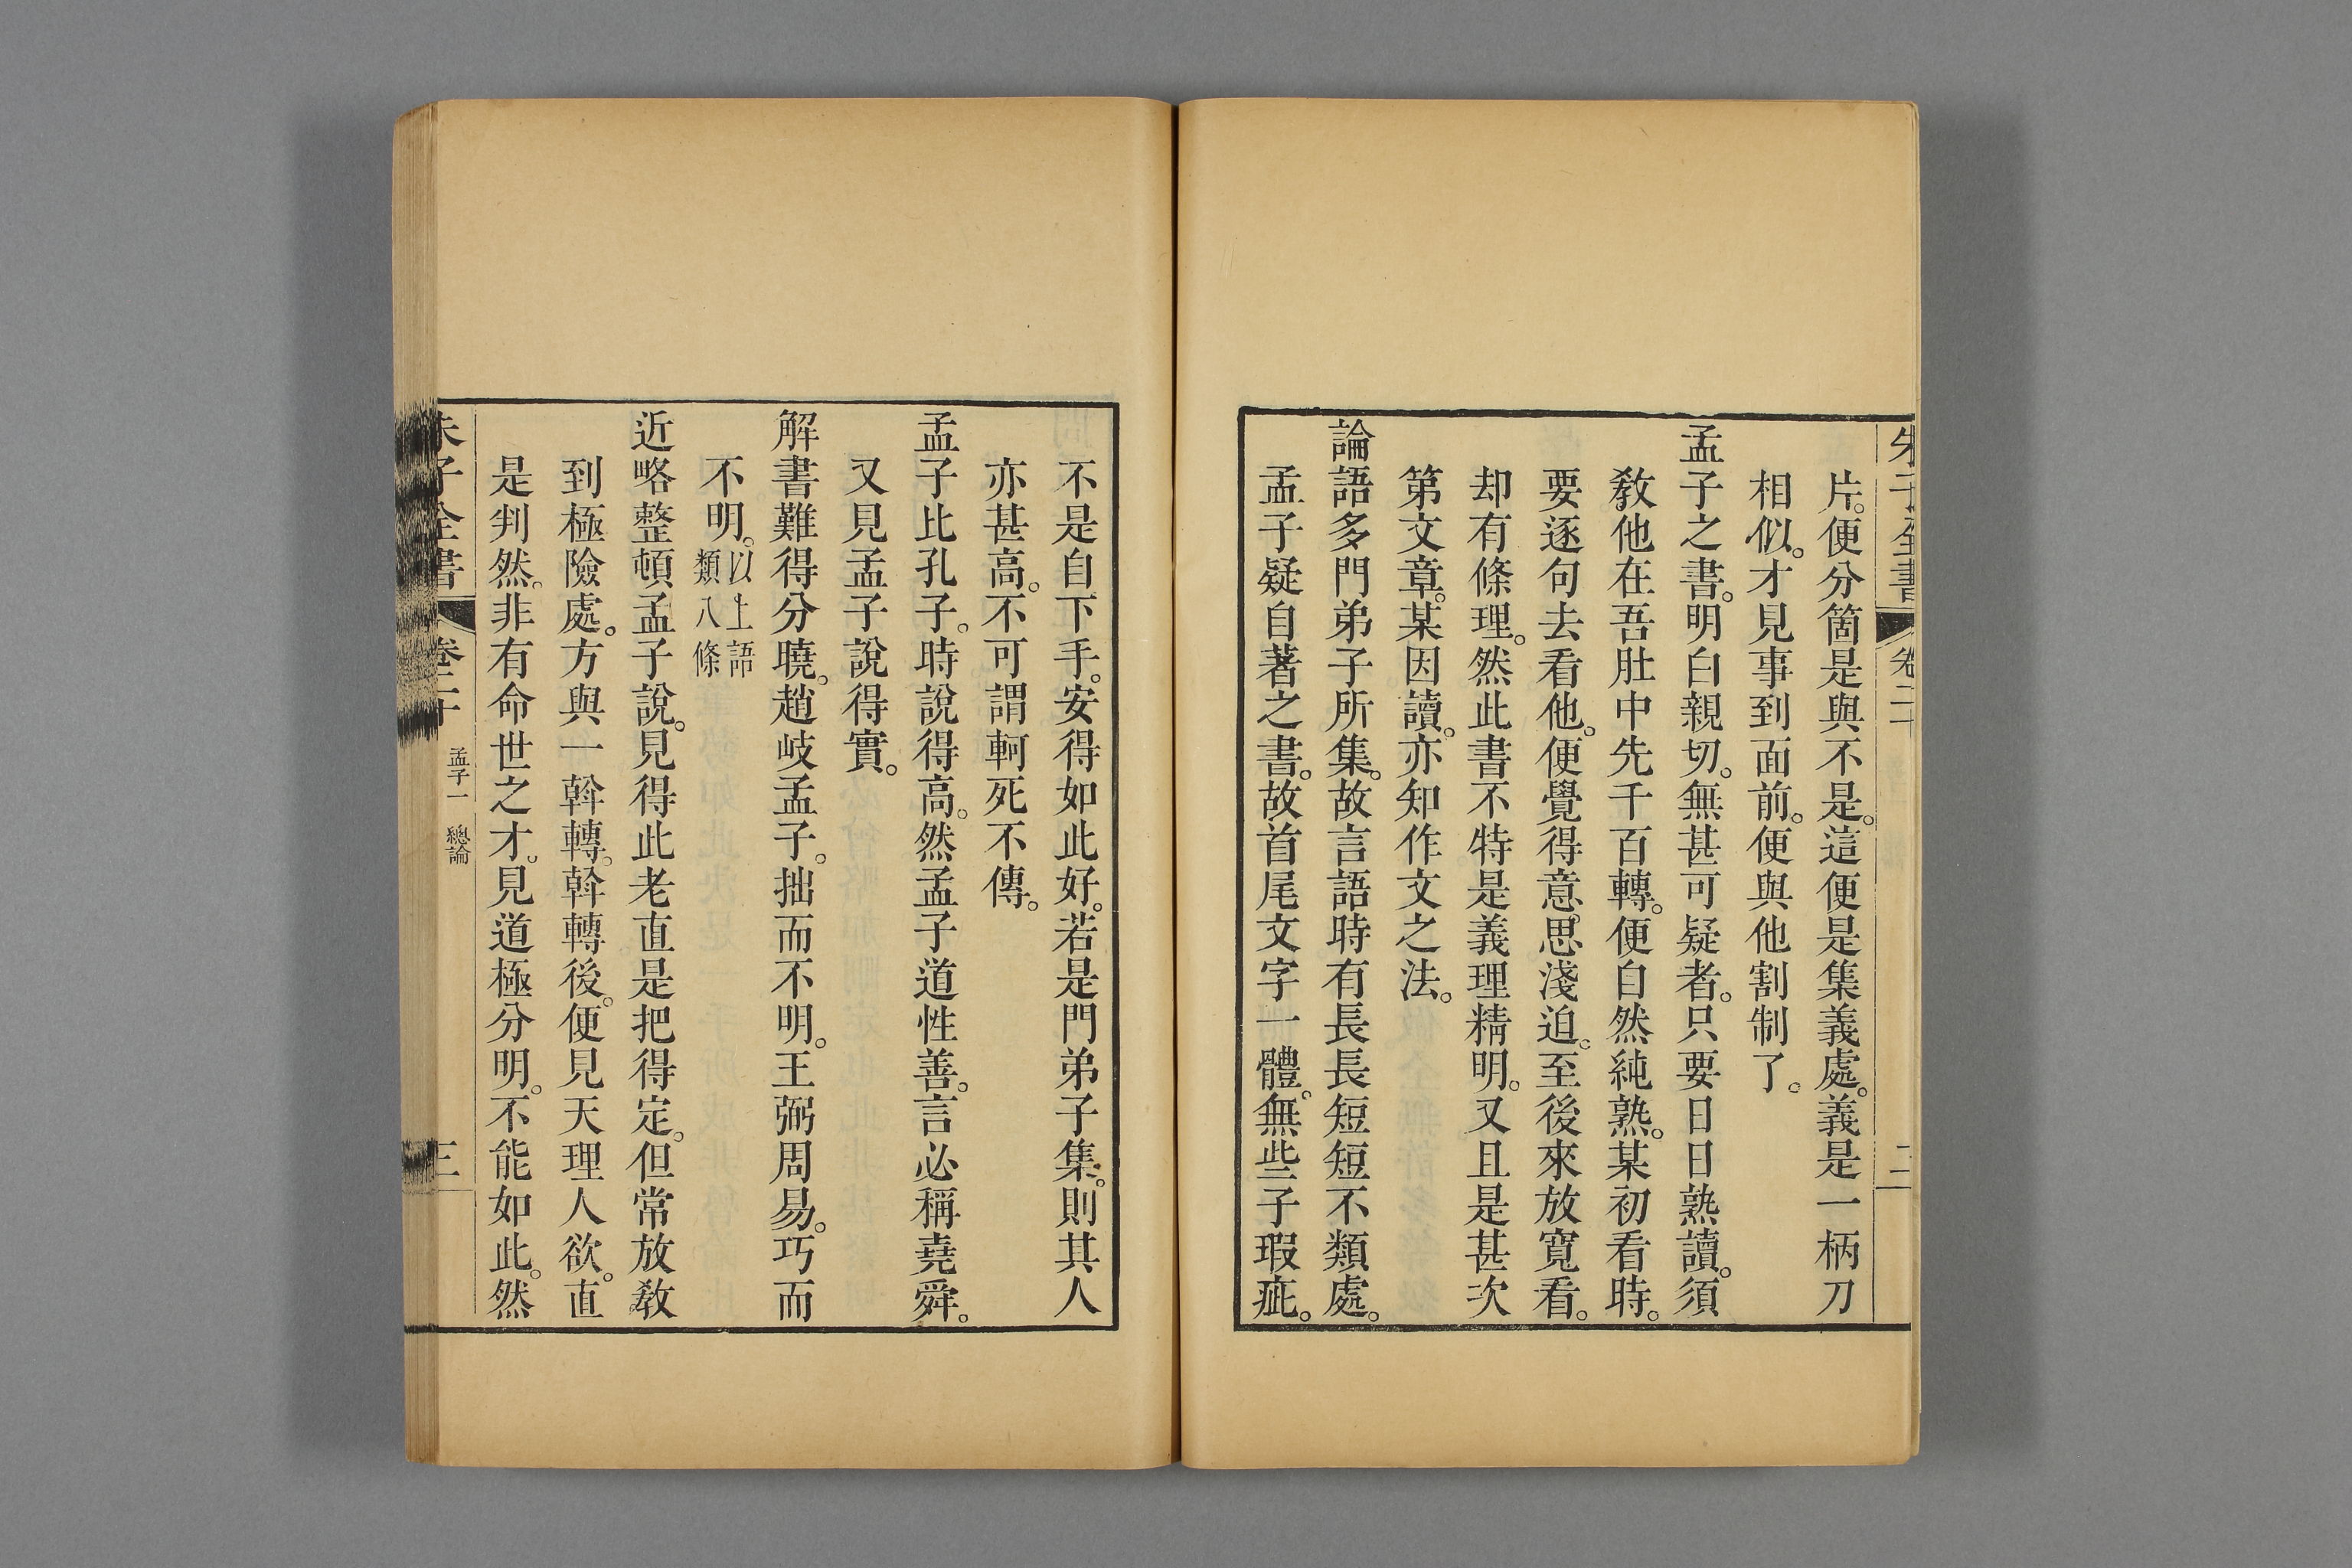 朱子全書 卷二十 二
片。便分箇是與不是。這便是集義處。義是一柄刀
相似。才見事到面前。便與他割制了。
孟子之書。明白親切。無甚可疑者。只要日日熟讀。須
教他在吾肚中先千百轉。便自然純熟。某初看時。
要逐句去看他。便覺得意思淺迫。至後來放寬看。
却有條理。然此書不特是義理精明。又且是甚次
第文章。某因讀。亦知作文之法。
論語多門弟子所集。故言語時有長長短短不類處。
孟子疑自著之書。故首尾文字一體。無些子瑕疵。
不是自下手。安得如此好。若是門弟子集。則其人
亦甚高。不可謂軻死不傳。
孟子比孔子。時說得高。然孟子道性善。言必稱堯舜。
又見孟子說得實。
解書難得分曉。趙岐孟子。拙而不明。王弼周易。巧而
不明。以上語類八條
近略整頓孟子說。見得此老直是把得定。但常放教
到極險處。方與一斡轉。斡轉後。便見天理人欲。直
是判然。非有命世之才。見道極分明。不能如此。然
朱子全書 卷二十 孟子一 總論 三